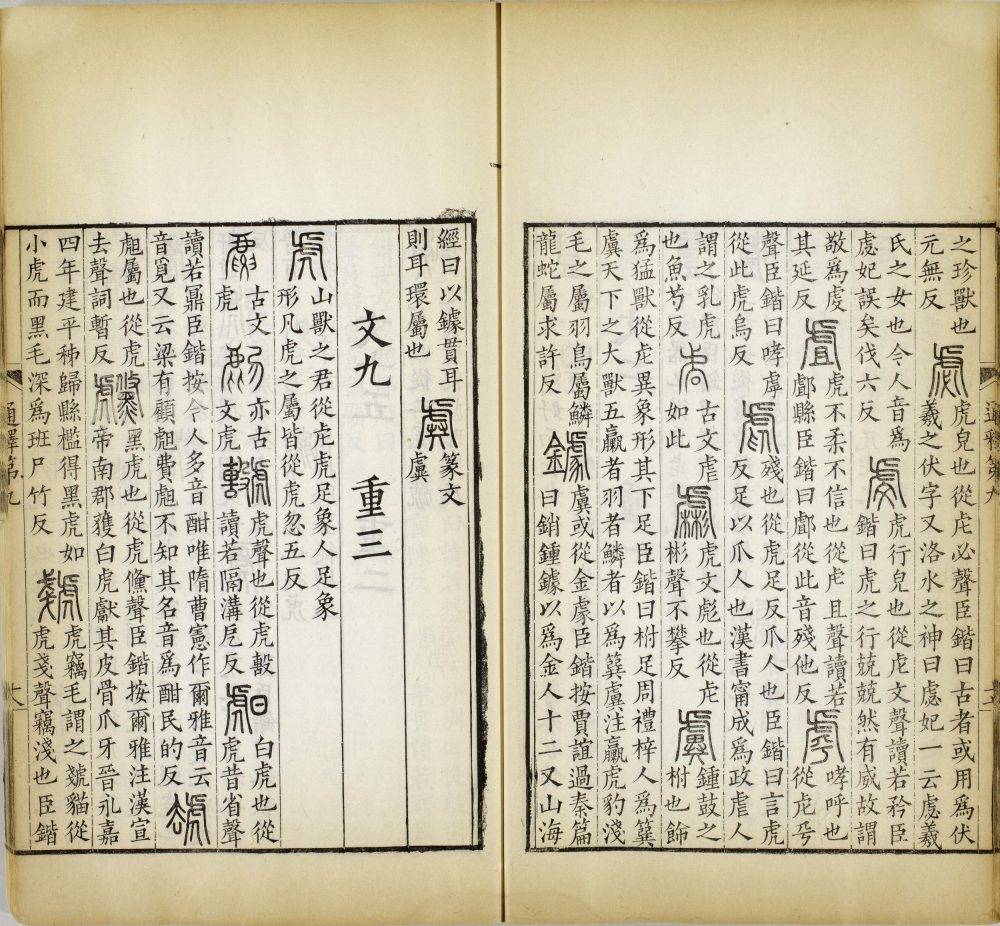 之珍獸也
元無反
虙
虎皃也從虍必聲臣鍇曰古者或用為伏
羲之伏字又洛水之神曰虙妃一云虙羲
氏之女也今人音為
虙妃誤矣伐六反
虔
虎行皃也從虍文聲讀若矜臣
鍇曰虎之行兢兢然有威故謂
敬為虔
其延反
虘
虎不柔不信也從虍且聲讀若
䣜縣臣鍇曰䣜從此音殘他反
虖
哮呼也
從虍乎
聲臣鍇曰哮虖
從此虎烏反
虐
殘也從虎足反爪人也臣鍇曰言虎
反足以爪人也漢書甯成為政虐人
謂之乳虎
也魚芍反
古文虐
如此
虨
虎文彪也從虍
彬聲不攀反
虡
鍾鼓之
柎也飾
為猛獸從虍異象形其下足臣鍇曰柎足周禮梓人為簨
虡天下之大獸五臝者羽者鱗者以為簨虡注臝虎豹淺
毛之屬羽鳥屬鱗
龍蛇屬求許反
鐻
虡或從金豦臣鍇按賈誼過秦篇
曰銷鍾鐻以為金人十二又山海
通釋第九
經曰以鐻貫耳
則耳環屬也
虡
篆文
虡
文九 重三
虎
山獸之君從虍虎足象人足象
形凡虎之屬皆從虎忽五反
古文
虎
亦古
文虎
虎聲也從虎㱿
讀若隔溝戹反
䖑
白虎也從
虎昔省聲
讀若鼏臣鍇按今人多音酣唯隋曹憲作爾雅音云
音覓又云梁有顧䖑費䖑不知其名音為酣民的反
䖑屬也從虎
去聲詞暫反
虪
黑虎也從虎儵聲臣鍇按爾雅注漢宣
帝南郡獲白虎獻其皮骨爪牙晉永嘉
四年建平秭歸縣檻得黑虎如
小虎而黑毛深為班尸竹反
虦
虎竊毛謂之虦貓從
虎戔聲竊淺也臣鍇
通釋第九